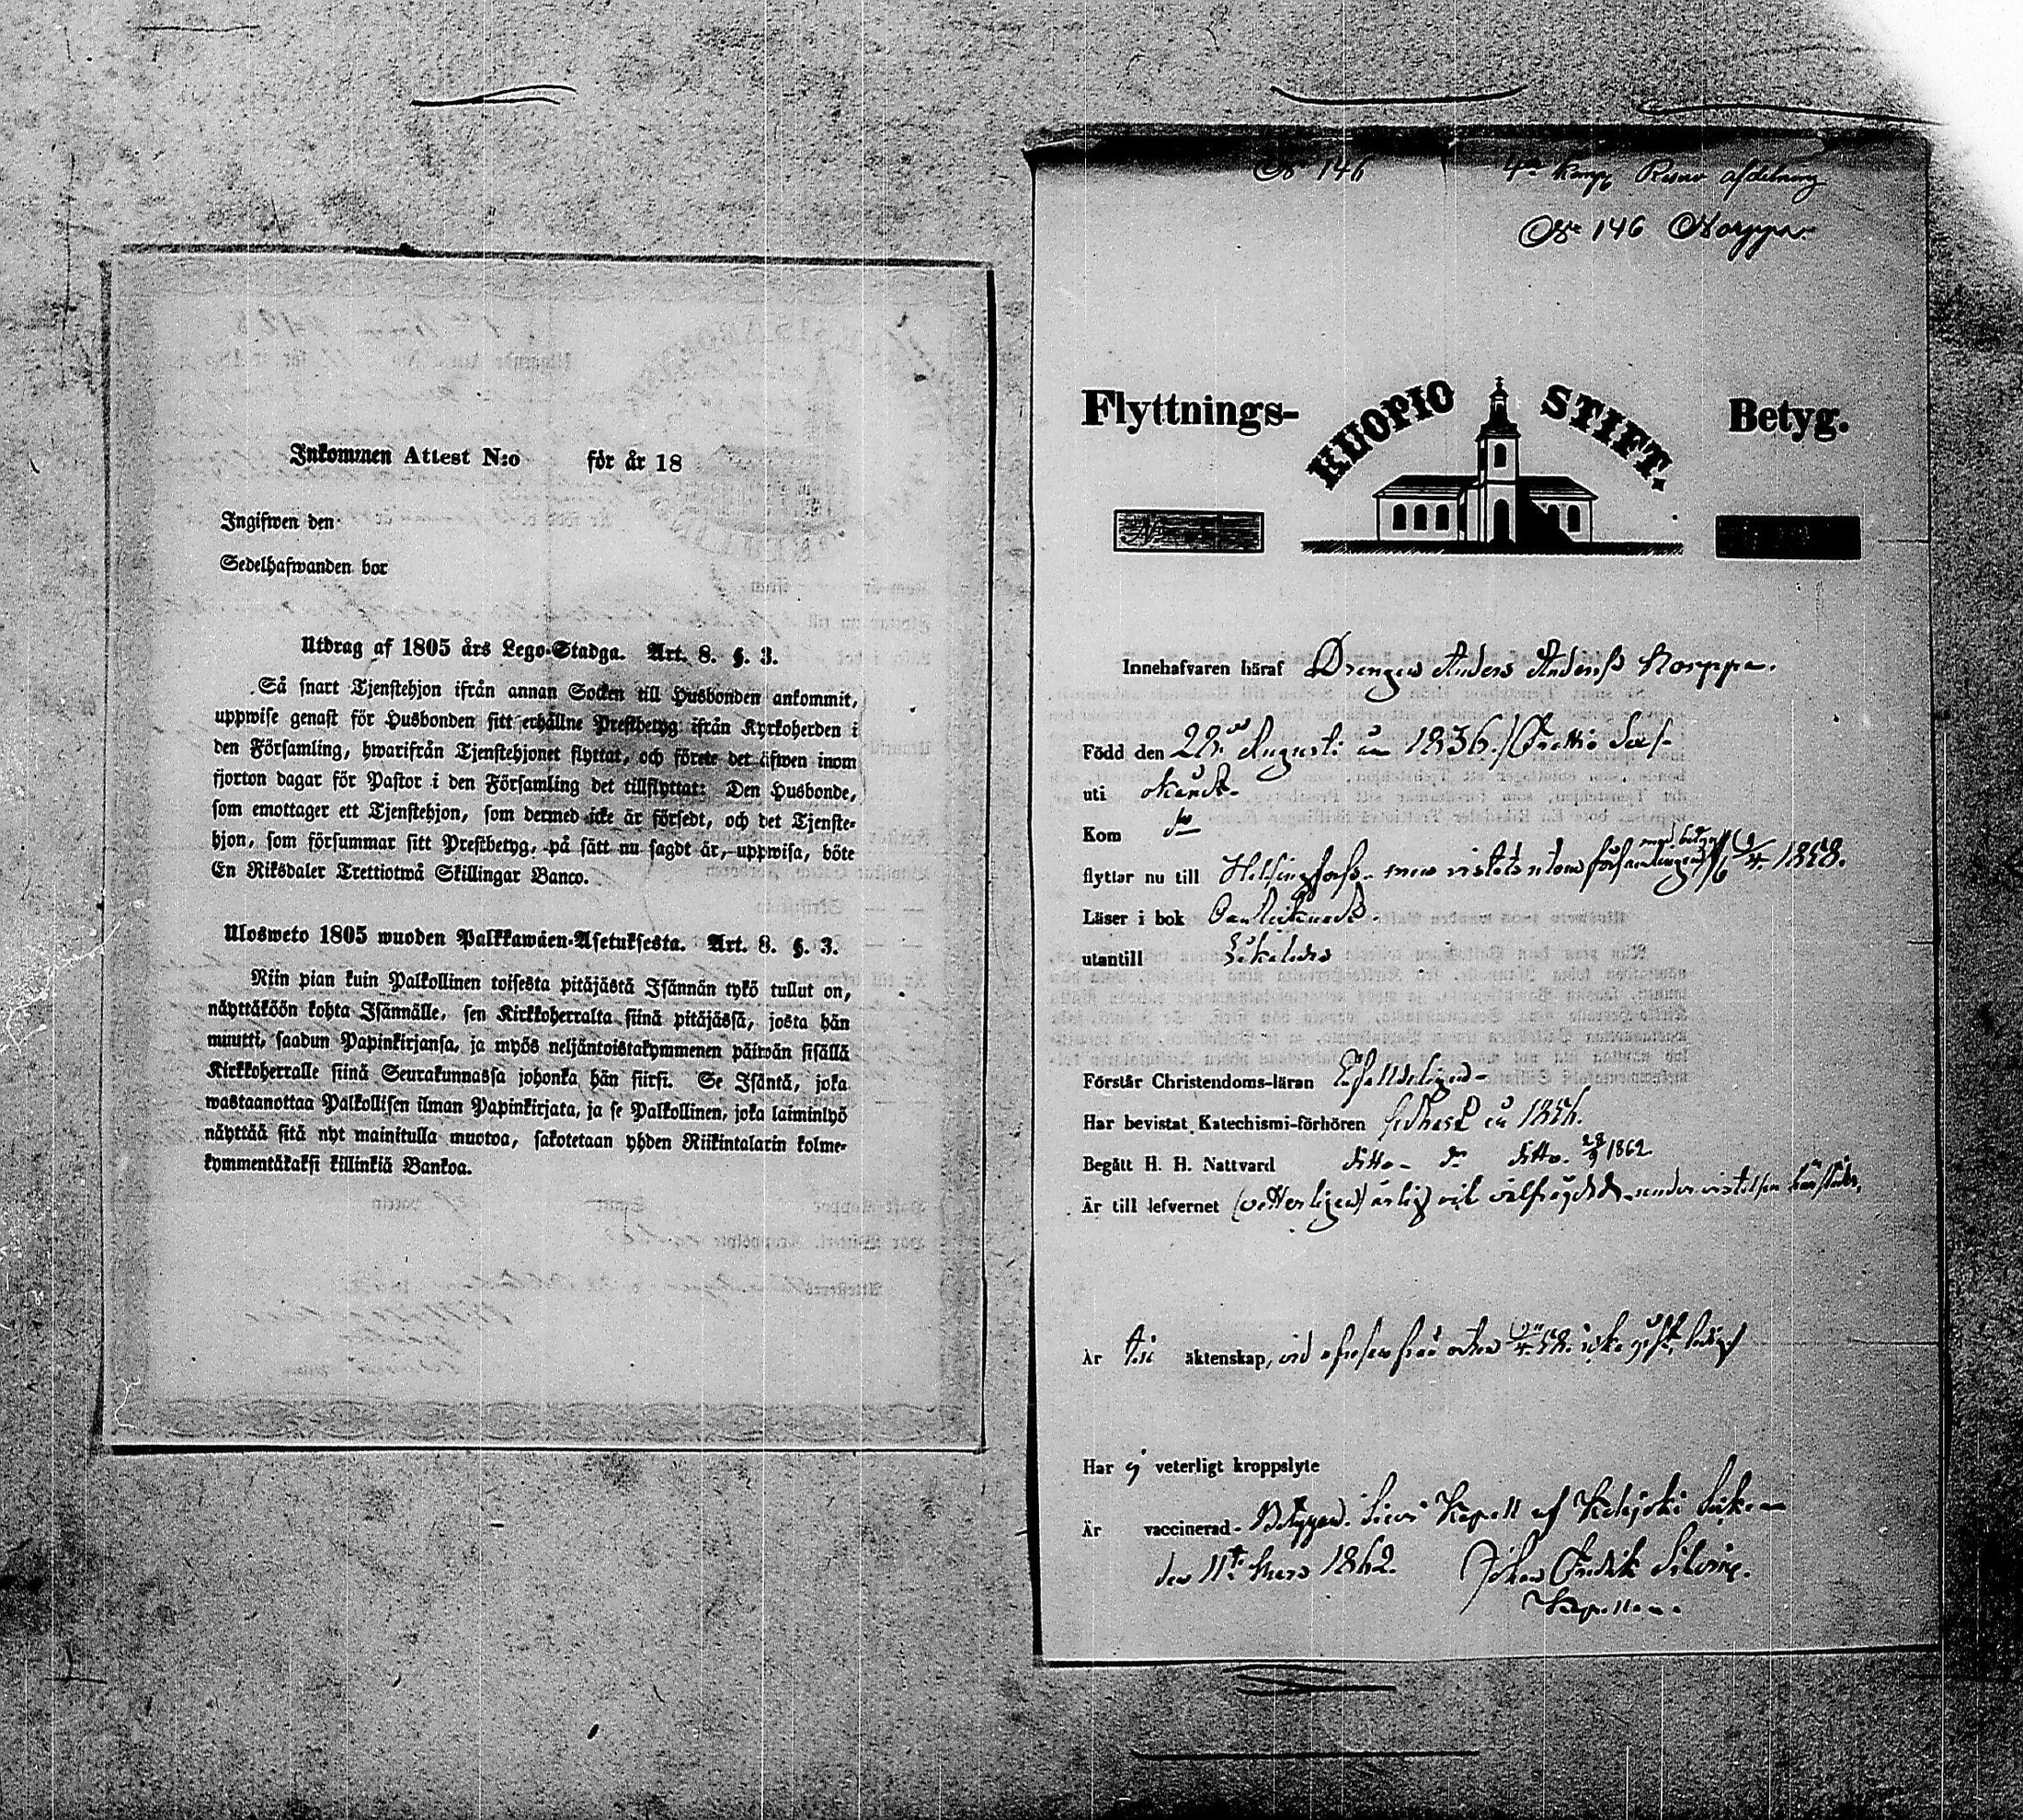 Inkommen Attest N:o för år 18
Ingifwen den
Sedelhafwanden bor
Utdrag af 1805 års Lego-Stadga. Art. 8. §. 3.
Så snart Tjenstehjon ifrån annan Socken till Husbonden ankommit,
uppwise genast för Husbonden sitt erhållne Prestbetyg ifrån Kyrkoherden i
den Församling, hwarifrån Tjenstehjonet flyttat, och förete det äfwen inom
fjorton dagar för Pastor i den Församling det tillflyttat: Den Husbonde,
som emottager ett Tjenstehjon, som dermed icke är försedt, och det Tjenste-
hjon, som försummar sitt Prestbetyg, på sätt nu sagdt är, uppwisa, böte
En Riksdaler Trettiotwå Skillingar Banco.
Ulosweto 1805 wuoden Palkkawäen-Asetuksesta. Art. 8. §. 3.
Niin pian kuin Palkollinen toisesta pitäjästä Isännän tykö tullut on,
näyttäköön kohta Isännälle, sen Kirkkoherralta siinä pitäjässä, josta hän
muutti, saadun Papinkirjansa, ja myös neljäntoistakymmenen päiwän sisällä
Kirkkoherralle siinä Seurakunnassa johonka hän siirsi. Se Isäntä, joka
wastaanottaa Palkollisen ilman Papinkirjata, ja se Palkollinen, joka laiminlyö
näyttää sitä nyt mainitulla muotoa, sakotetaan yhden Riikintalarin kolme-
kymmentäkaksi killinkiä Bankoa.
№ 146 4de Komp Reserv afdelning
№ 146 Norppa.
Flyttnings- KUOPIO STIFT. Betyg.
Innehafvaren häraf Drengen Anders Anderss Norppa.
Född den 28de Augusti år 1836.
uti
Kom
flyttar nu till Helsingfors men vistats utom församlingen med betyg 1858.
Läser i bok
utantill
Förstår Christendoms-läran
Har bevistat Katechismi-förhören sednast år 1856.
Begått H. H. Nattvard ditto do ditto. 1862
Är till lefvernet (vetterligen) ärlig och välfrejdad under vistelsen härstädes,
Är äktenskap, vid 58. icke gift, ledig
Har ej veterligt kroppslyte
Är vaccinerad. Betygar. Sievi Kapell af Kalajoki Socken
den 11te Mars 1862. Johan Fredrik
Kapellan.